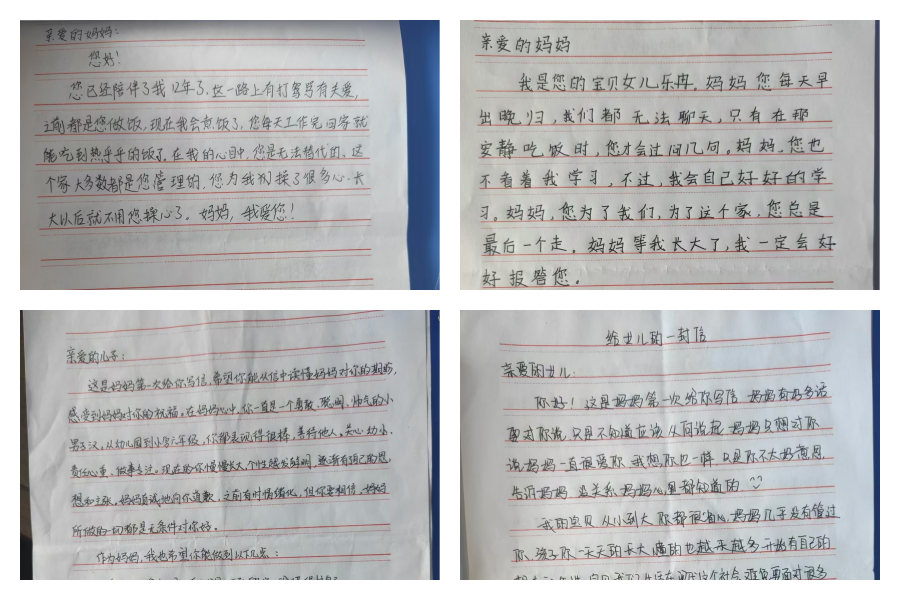 亲爱的妈妈：
您好！
您已经陪伴了我12年了，这一路上有打骂写有关爱，
之前都是您做饭，现在我会煮饭了，您每天工作完回家就
能吃到热乎乎的饭了。在我的心目中，您是无法替代的，这
个家大多数都是您管理的，您为我们操了很多心，长
大以后就不用您操心了。妈妈，我爱您！
亲爱的妈妈
我是您的宝贝女儿乐冉。妈妈您每天早
出晚归，我们都无法聊天，只有在那
安静吃饭时，您才会过问几句。妈妈，您也
不看着我学习，不过，我会自己好好的学
习。妈妈，您为了我们，为了这个家，您总是
最后一个走。妈妈等我长大了，我一定会好
好报答您。
亲爱的儿子：
这是妈妈第一次给你写信，希望你能从信中读懂妈妈对你的期盼，
感受到妈妈对你的祝福。在妈妈心中，你一直是一个勇敢、聪明、帅气的小
男子汉，从幼儿园到小学六年级，你都表现得很棒，善待他人，关心幼小，
责任心重，做事专注。现在的你慢慢长大，个性越发鲜明，逐渐有自己的思
想和主张，妈妈真诚地向你道歉，之前有时情绪化，但你要相信，妈妈
所做的一切都是无条件对你好。
作为妈妈，我也希望你能做到以下几点：
给女儿的一封信
亲爱的女儿：
你好！这是妈妈第一次给你写信 妈妈有好多话
要对你说 只是不知道应该从何说起 妈妈只想对你
说妈妈一直很爱你 我想你也一样 只是你不大好意思
告诉妈妈 没关系 妈妈心里都知道的
我的宝贝 从小到大 你都很省心，妈妈几乎没有管过
你，孩子你一天天的长大 懂的也越来越多 开始有自己的